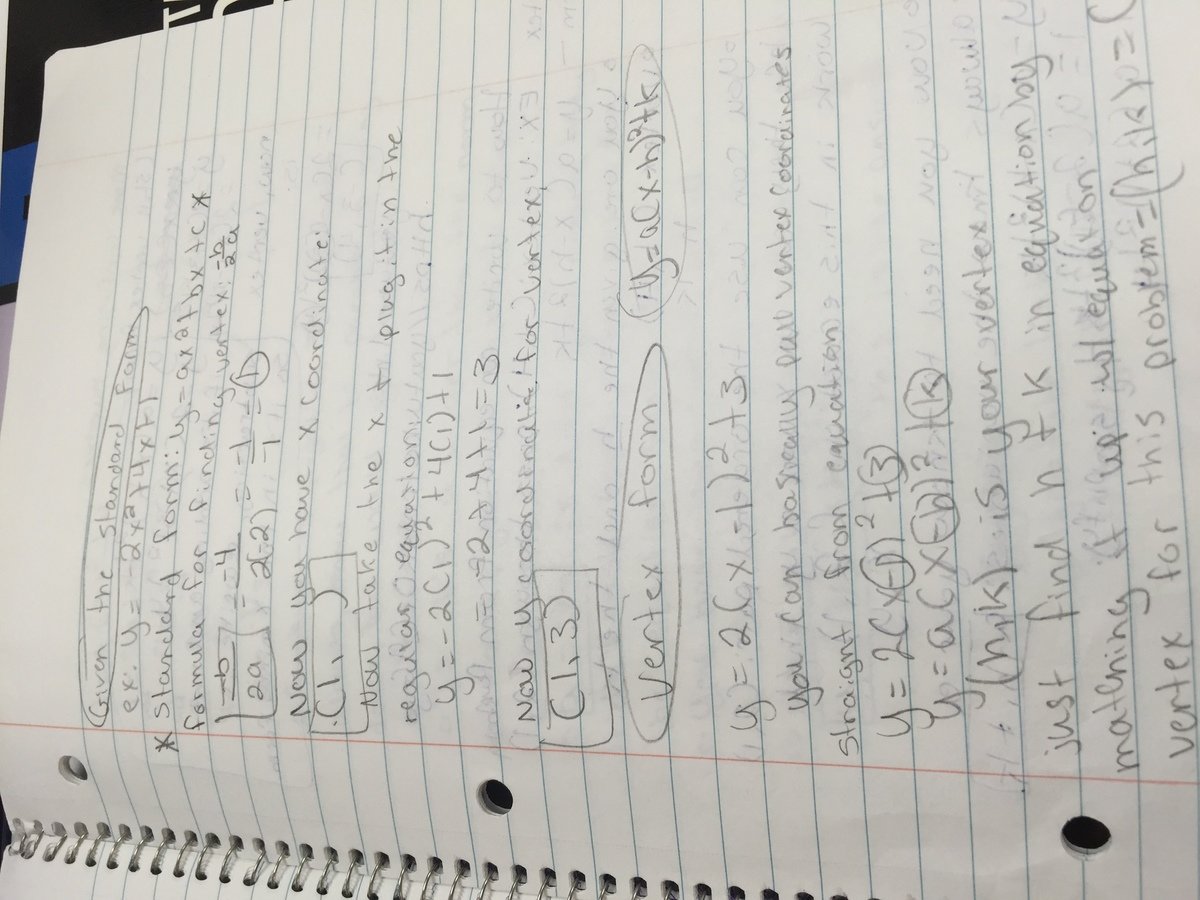 Given the standard form
ex: y = -2x²+4x+1
* Standard form: y=ax²+bx+c *
formula for finding vertex: -b/2a
-b/2a = -4/2(-2) = -1/-1 = 1
Now you have x coordinate:
(1, )
Now take the x + plug it in the
regular equation
y = -2(1)² + 4(1) + 1
= -2+4+1=3
Now y coordinate for vertex
(1,3)
Vertex form y=a(x-h)²+k
y = 2(x-1)²+3
you can basically pull vertex coordinates
straight from equation
y = 2(x-1)²+3
y = a(x-h)²+k
(h,k) is your vertex
just find h + k in equation by
matching it up w/ equation
vertex for this problem=(h,k)=(